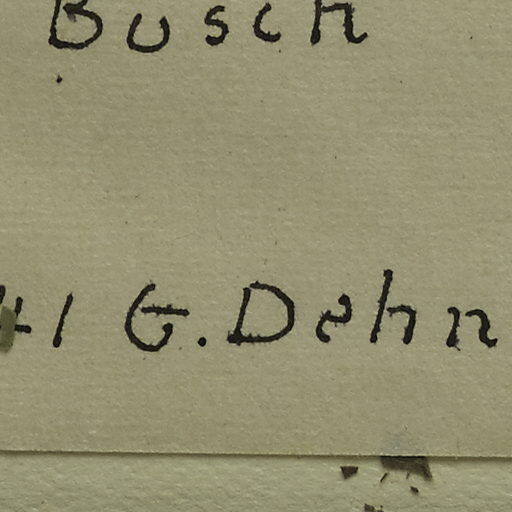 Busch
41 G. Dehn